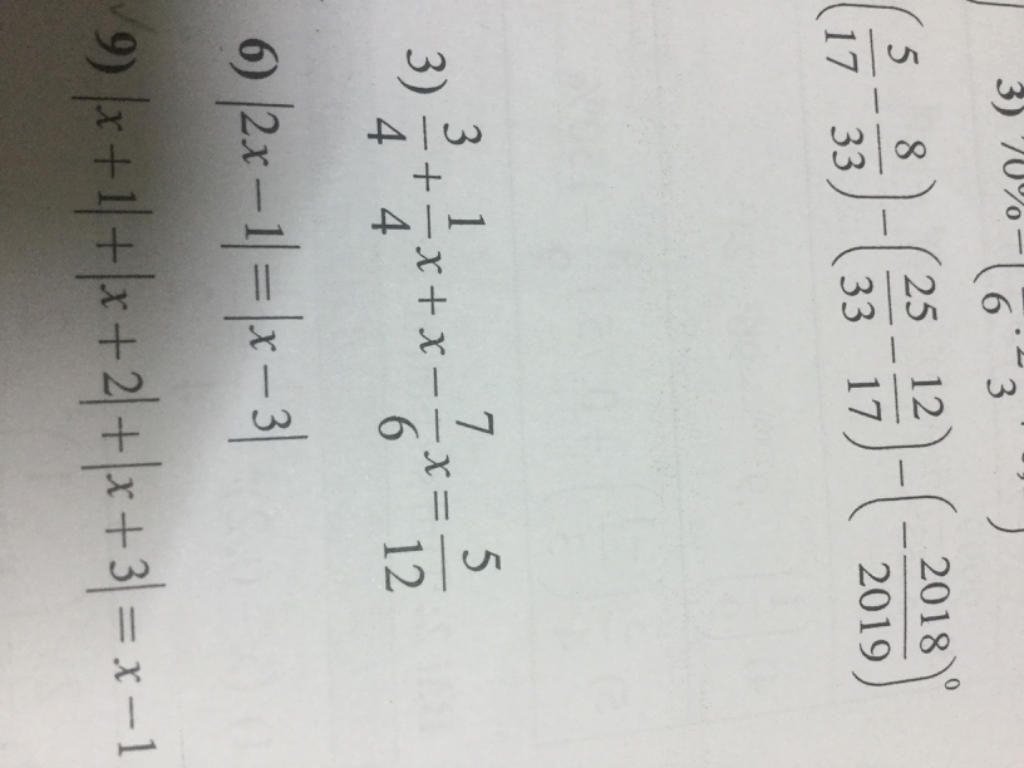 3) 70% -
(5/17 - 8/33) - (25/33 - 12/17) - (-2018/2019)⁰
3) 3/4 + 1/4 x + x - 7/6 x = 5/12
6) |2x - 1| = |x - 3|
√9) |x + 1| + |x + 2| + |x + 3| = x - 1